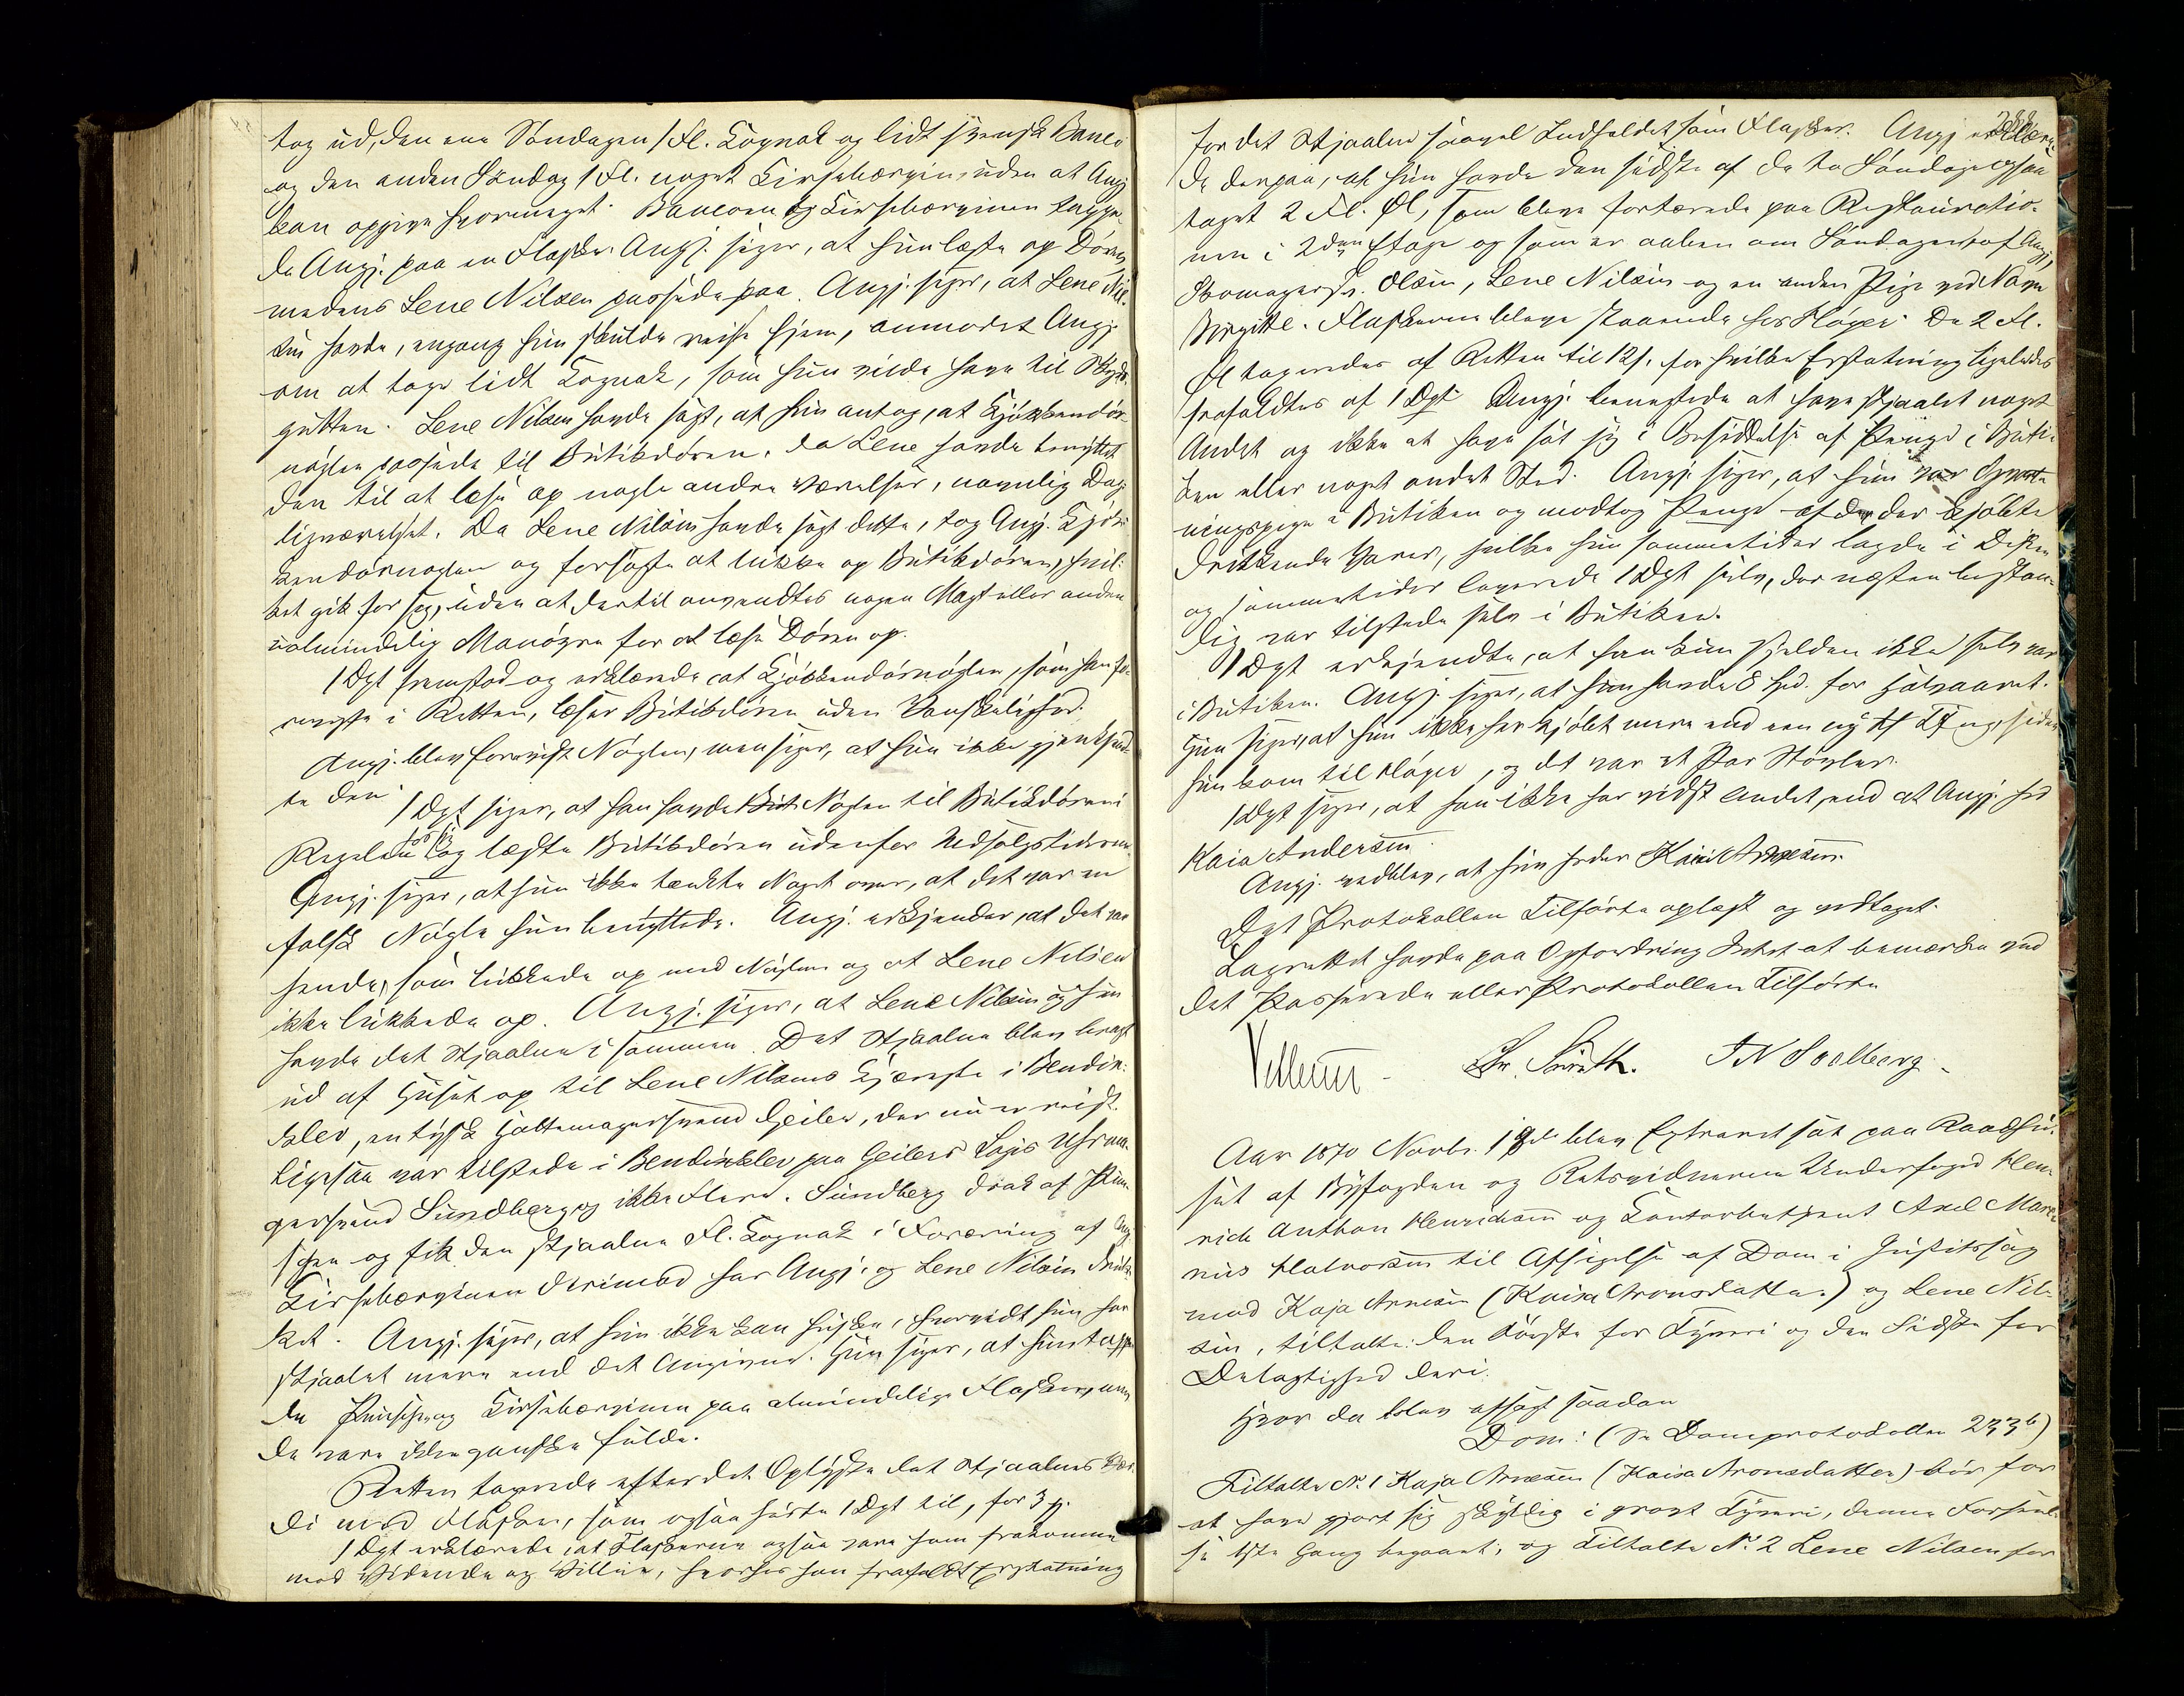 tog ud, den ene Søndagen 1 Fl. Cognak og lidt svensk Banco
og den anden Søndag 1 Fl. noget Kirsebærviin, uden at Angj.
kan opgive hvormeget. Bancoen og Kirsebærvinen tappe-
de Angj. paa en Flaske. Angj. siger, at hun læste op Døren,
medens Lene Nilsen passede paa. Angj. siger, at Lene Nil-
sen havde, engang hun skulde reise hjem, anmodet Angj.
om at tage lidt Cognak, som hun vilde have til Skyds-
gutten. Lene Nilsen havde sagt, at hun antog, at Kjøkkendør-
nøglen passede til Butikdøren, da Lene havde benyttet
den til at læse op nogle andre Værelser, navnlig Dag-
ligværelset. Da Lene Nilsen havde sagt dette, tog Angj. Kjøk-
kendørnøglen og forsøgte at lukke op Butikdøren, hvil-
ket gik for sig, uden at dertil anvendtes nogen Magt eller anden
ualmindelig Manøvre for at læse Døren op.
1 Dgt fremstod og erklærede, at Kjøkkendørnøglen, som han fo-
reviste i Retten, læser Butikdøren uden Vanskelighed.
Angj. blev forevist Nøglen, men siger, at hun ikke gjenkjend-
te den.
1 Dgt siger, at han havde Nøglen til Butikdøren i
Regelen hos sig og læste Butikdøren udenfor Udsalgstiderne.
Angj. siger, at hun ikke tænkte Noget over, at det var en
falsk Nøgle hun benyttede. Angj. erkjender, at det var
hende, som lukkede op med Nøglen og at Lene Nilsen
ikke lukkede op. Angj. siger, at Lene Nilsen og hun
havde det Stjaalne i sammen. Det Stjaalne blev bragt
ud af Huset op til Lene Nilsens Kjæreste i Bendix-
klev, en tydsk Hattemagersvend Geiler, der nu er reist.
Ligesaa var tilstede i Bendixklev paa Geilers Logis Uhrma-
gersvend Sundberg og ikke Flere. Sundberg drak af Pun-
schen og fik den stjaalne Fl. Cognak i Foræring af Angj.
Kirsebærvinen derimod har Angj. og Lene Nilsen druk-
ket. Angj. siger, at hun ikke kan huske, hvorvidt hun har
stjaalet mere end det Angivne. Hun siger, at hun tappe-
de Punsch og Kirsebærvinen paa almindelige Flasker, men
de vare ikke ganske fulde.
Retten taxerede efter det Oplyste det Stjaalnes Vær-
di med Flasker, som ogsaa hørte 1 Dgt til, for 3 ꝭ.
1 Dgt erklærede, at Flaskerne ogsaa vare ham frakomne
mod Vidende og Villie, hvorfor han frafaldt Erstatning
for det Stjaalne saavel Indholdet som Flasker. Angj. erklære-
de derpaa, at hun havde den sidste af de to Søndage ogsaa
taget 2 Fl. Øl, som bleve fortærede paa Restauratio-
nen i 2den Etage og som er aaben om Søndagen, af Angj.,
Skomagersv. Olsen, Lene Nilsen og en anden Pige ved Navn
Birgitte. Flaskerne bleve staaende hos Høyer. De 2 Fl.
Øl taxeredes af Retten til 12 s. for hvilke Erstatning ligeledes
frafaldtes af 1 Dgt. Angj. benegtede at have stjaalet noget
Andet og ikke at have sat sig i Besiddelse af Penge i Buti-
ken eller noget andet Sted. Angj. siger, at hun var Opvart-
ningspige i Butiken og modtog Penge af dem der kjøbte
drikkende Varer, hvilke hun sommetider lagde i Disken
og sommetider leverede 1 Dgt selv, der næsten bestan-
dig var tilstede selv i Butiken.
1 Dgt erkjendte, at han kun sjelden ikke selv var
i Butiken. Angj. siger, at hun havde 8 Spd. for Halvaaret.
Hun siger, at hun ikke har kjøbt mere end een ny Ting, siden
hun kom til Høyer, og det var et Par Støvler.
1 Dgt siger, at han ikke har vidst Andet, end at Angj. hed
Kaia Andersen.
Angj. vedblev, at hun heder Kaia Arnesen.
Det Protokollen Tilførte oplæst og vedtaget.
Lagrettet havde paa Opfordring Intet at bemærke ved
det Passerede eller Protokollen Tilførte
Chr. Smith. J N Soelberg.
Aar 1870 Novbr. 19de blev Extraret sat paa Raadhu-
set af Byfogden og Retsvidnerne Underfoged Hen-
rich Anthon Henrichsen og Contorbetjent Axel Mare-
nius Halvorsen til Afsigelse af Dom i Justitssag
mod Kaja Arnesen (Kaisa Aronsdatter) og Lene Nil-
sen, tiltalte: den Første for Tyveri og den Sidste for
Delagtighed deri.
Hvor da blev afsagt saadan
Dom: (Se Domprotokollen 233b)
Tiltalte No. 1 Kaja Arnesen (Kaisa Aronsdatter) bør for
at have gjort sig skyldig i grovt Tyveri, denne Forseel-
se 1ste Gang begaaet, og Tiltalte No. 2 Lene Nilsen for